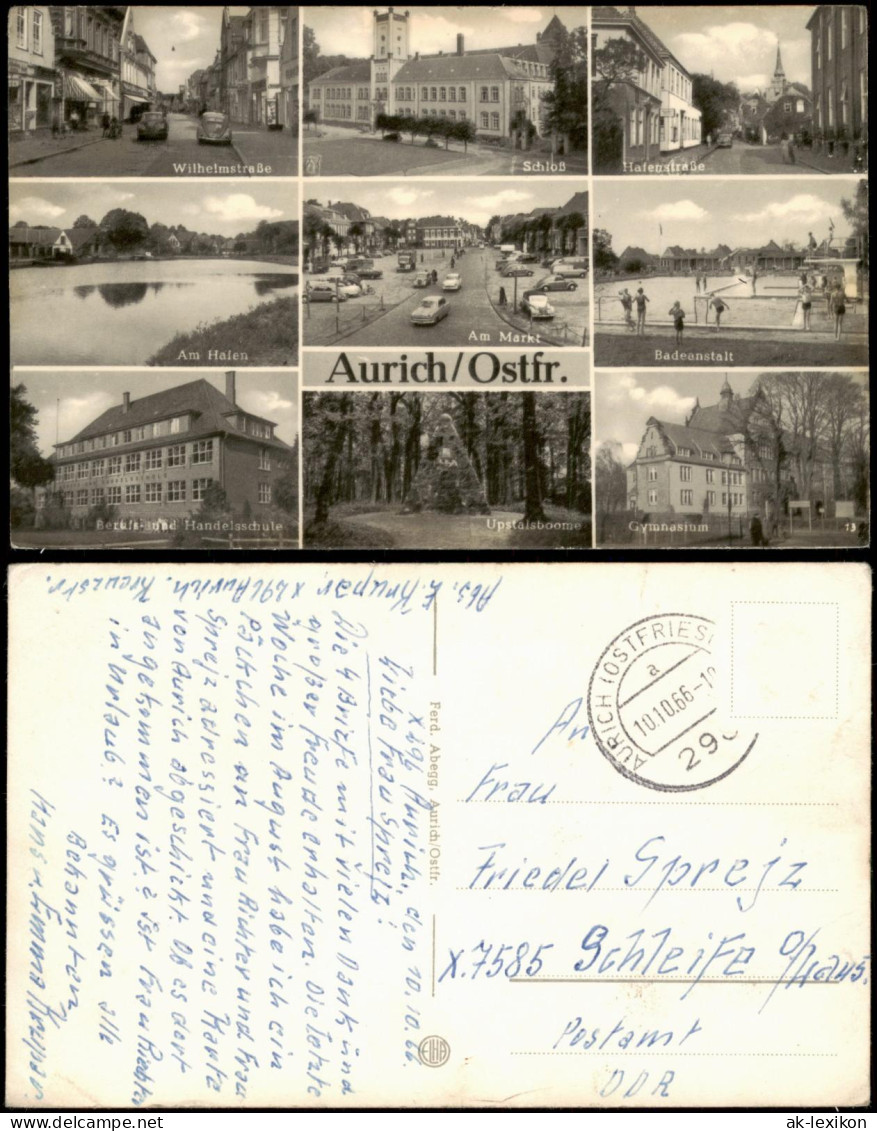 Wilhelmstraße
Schloß
Hafenstraße
Am Hafen
Am Markt
Badeanstalt
Aurich/Ostfr.
Berufs- und Handelsschule
Upstalsboome
Gymnasium
13
Abs. E. Krupar, X 296 Aurich. Kreuzstr.
X 296 Aurich, den 10.10.66.
Liebe Frau Sprejz!
Die 4 Briefe mit vielen Dank und
großer Freude erhalten. Die letzte
Woche im August habe ich ein
Päckchen an Frau Richter und Frau
Sprejz adressiert und eine Karte
von Aurich abgeschickt. Ob es dort
angekommen ist? Ist Frau Richter
in Urlaub? Es grüssen alle
Bekannten
Hans u. Emma Krupar.
Ferd. Abegg, Aurich/Ostfr.
ELHA
AURICH (OSTFRIES
a
10.10.66-1
296
An
Frau
Friedel Sprejz
X.7585 Schleife O/Laus.
Postamt
DDR
ak-lexikon